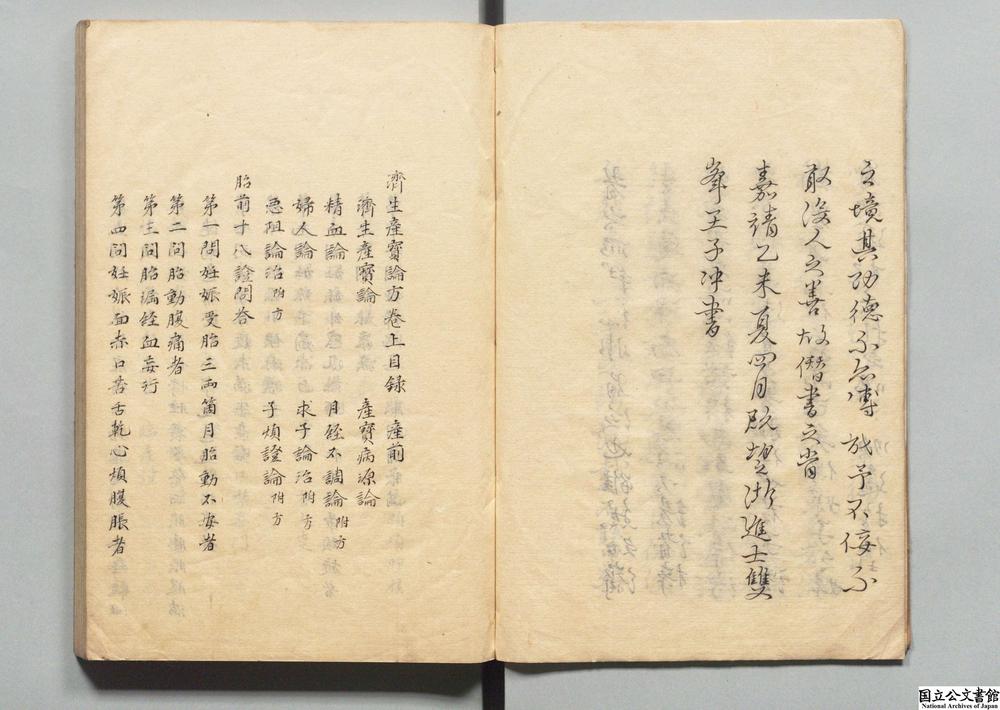 之境其功德不亦博哉予不佞不
敢没人之善故僭書之旹
嘉靖乙未夏四月既望浙進士雙
峯王子冲書
濟生產寶論方卷上目録 產前
濟生產寶論 產寶病源論
精血論 月經不調論附方
婦人論 求子論治附方
惡阻論治附方 子煩證論附方
胎前十八證問荅
第一問妊娠受胎三兩箇月胎動不安者
第二問胎動腹痛者
第三問胎漏經血妄行
第四問妊娠面赤口苦舌乾心煩腹脹者
国立公文書館
National Archives of Japan